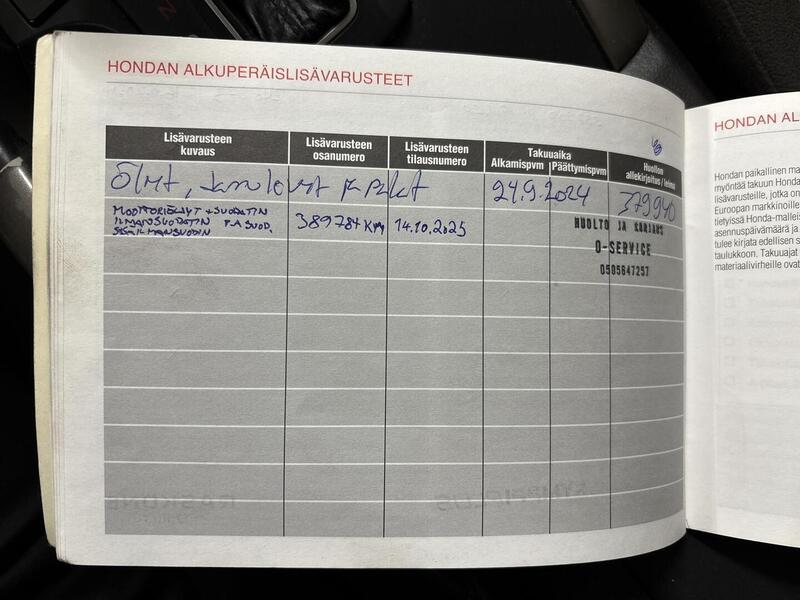 HONDAN ALKUPERÄISLISÄVARUSTEET
Lisävarusteen kuvaus
Lisävarusteen osanumero
Lisävarusteen tilausnumero
Takuuaika
Alkamispvm
Päättymispvm
Huollon allekirjoitus / leima
Öljyt, ja palat 24.9.2024 379940
MOOTTORIÖLJYT + SUODATIN
ILMANSUODATIN P.A SUOD.
SISÄILMANSUODIN
389784 Km 14.10.2025
HUOLTO JA KORJAUS
O-SERVICE
0505647257
HONDAN AL
Hondan paikallinen m
myöntää takuun Honda
lisävarusteille, jotka on
Euroopan markkinoille
tietyissä Honda-malleis
asennuspäivämäärä ja
tulee kirjata edellisen s
taulukkoon. Takuuajat
materiaalivirheille ovat